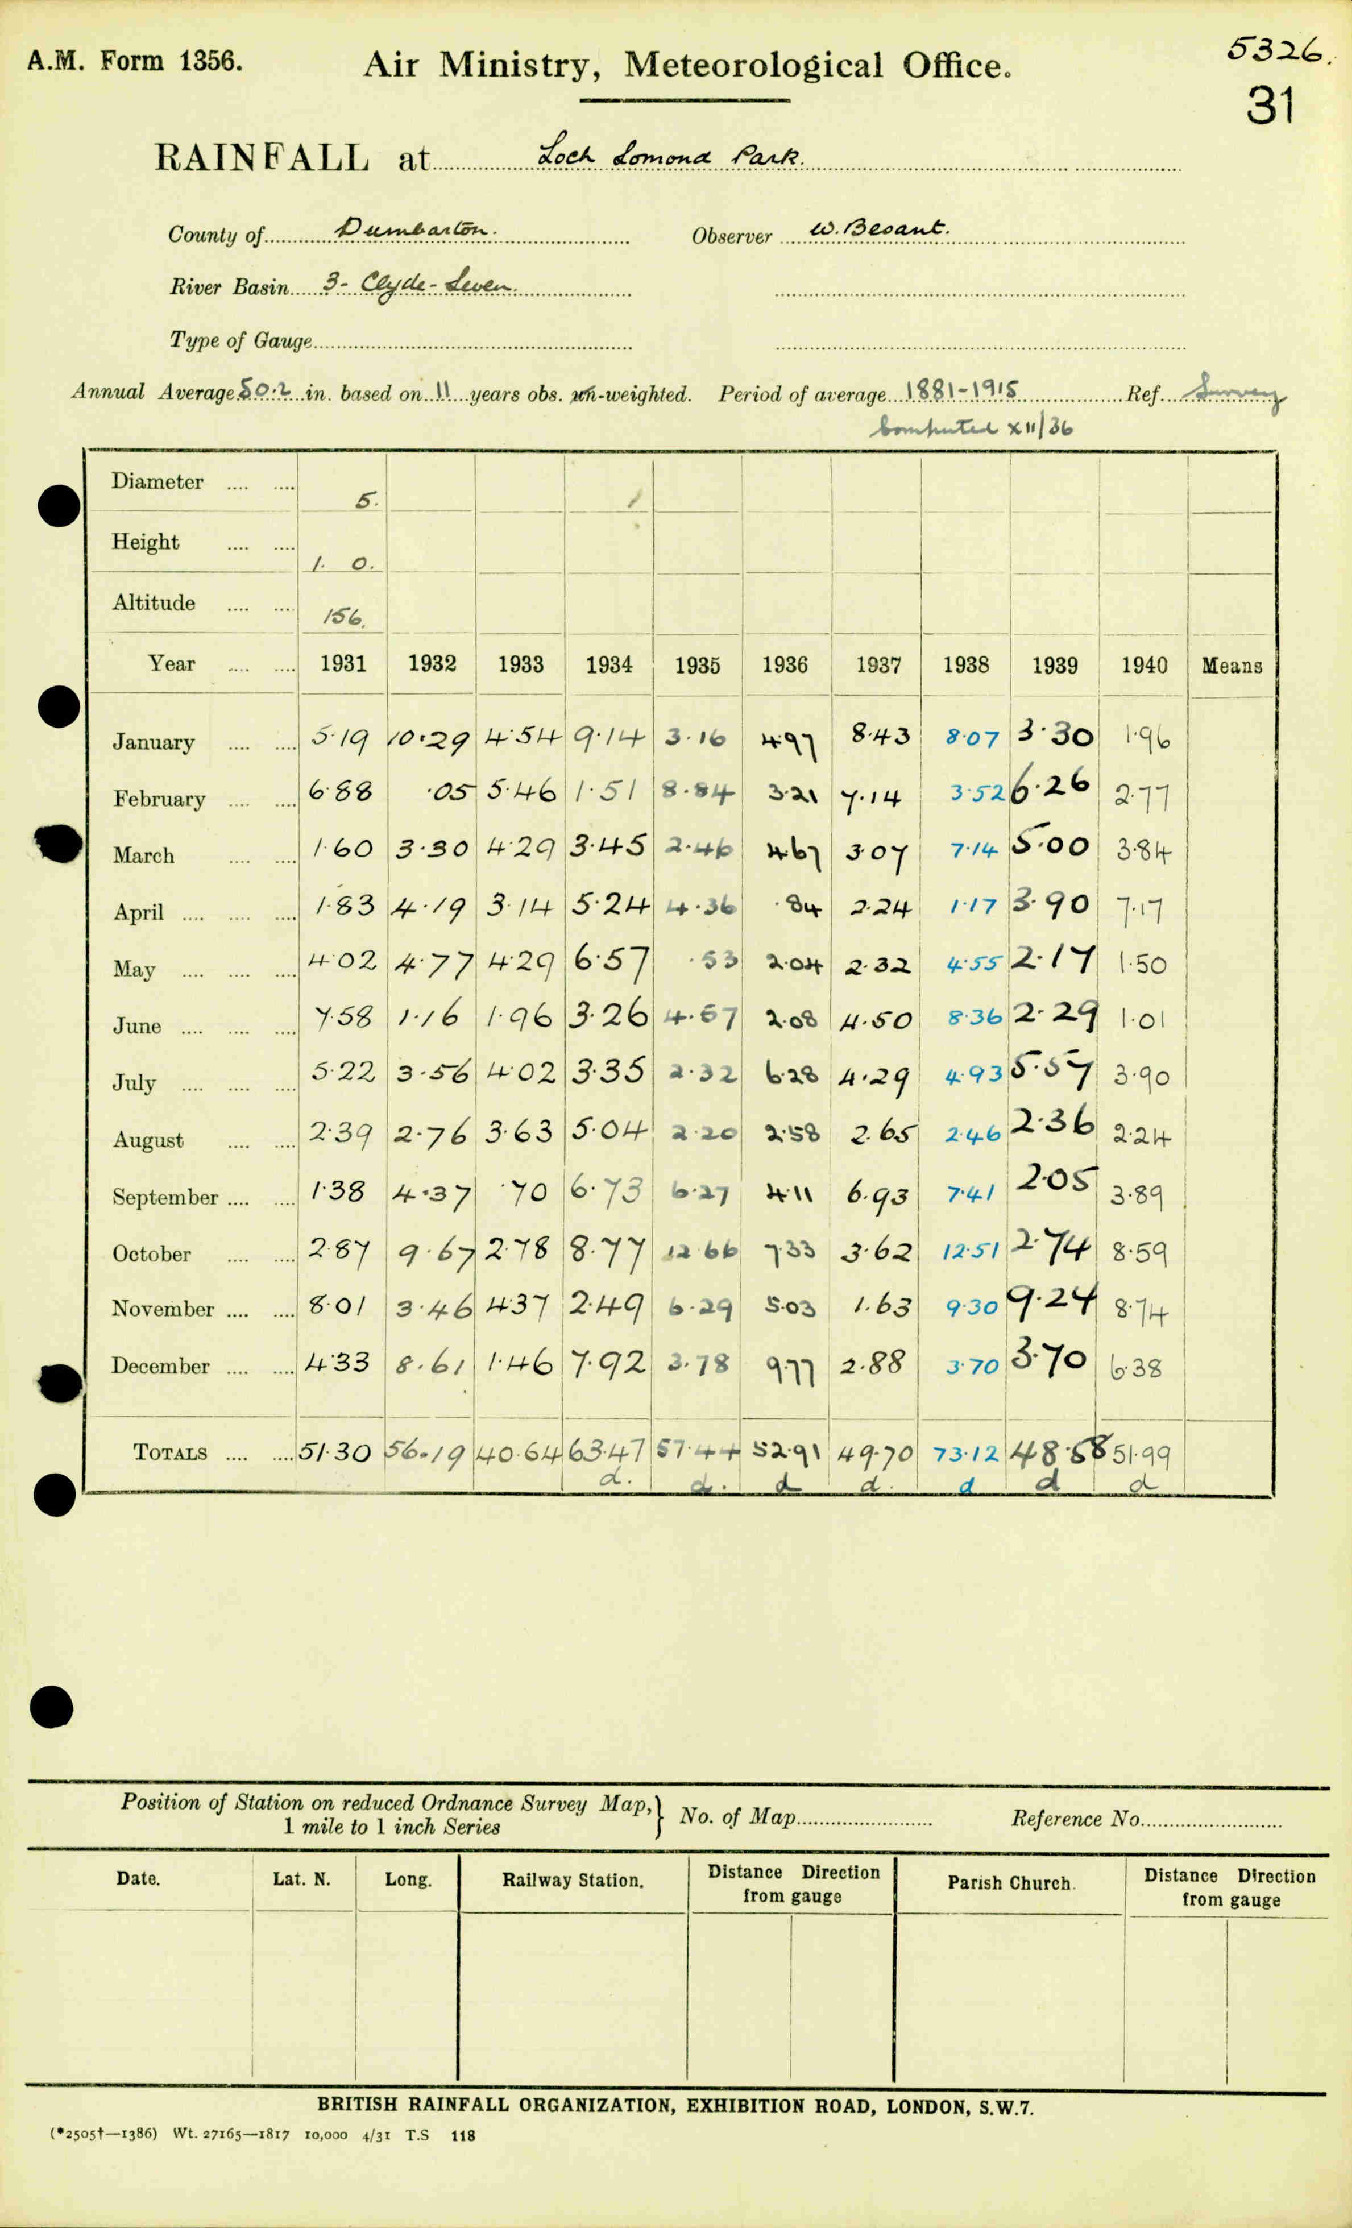 A.M. Form 1356.
Air Ministry, Meteorological Office.
5326.
31
RAINFALL at Loch Lomond Park.
County of Dumbarton. Observer W. Besant.
River Basin 3- Clyde-Leven.
Type of Gauge
Annual Average 50.2 in. based on 11 years obs. un-weighted. Period of average 1881-1915 Ref. Survey
Computed XII/36
Diameter 5.
Height 1. 0.
Altitude 156.
Year 1931 1932 1933 1934 1935 1936 1937 1938 1939 1940 Means
January 5.19 10.29 4.54 9.14 3.16 4.97 8.43 8.07 3.30 1.96
February 6.88 .05 5.46 1.51 8.84 3.21 7.14 3.52 6.26 2.77
March 1.60 3.30 4.29 3.45 2.46 4.67 3.07 7.14 5.00 3.84
April 1.83 4.19 3.14 5.24 4.36 .84 2.24 1.17 3.90 7.17
May 4.02 4.77 4.29 6.57 .53 2.04 2.32 4.55 2.17 1.50
June 7.58 1.16 1.96 3.26 4.57 2.08 4.50 8.36 2.29 1.01
July 5.22 3.56 4.02 3.35 2.32 6.28 4.29 4.93 5.57 3.90
August 2.39 2.76 3.63 5.04 2.20 2.58 2.65 2.46 2.36 2.24
September 1.38 4.37 .70 6.73 6.27 4.11 6.93 7.41 2.05 3.89
October 2.87 9.67 2.78 8.77 12.66 7.33 3.62 12.51 2.74 8.59
November 8.01 3.46 4.37 2.49 6.29 5.03 1.63 9.30 9.24 8.74
December 4.33 8.61 1.46 7.92 3.78 9.77 2.88 3.70 3.70 6.38
TOTALS 51.30 56.19 40.64 63.47 57.44 52.91 49.70 73.12 48.58 51.99
d. d. d d. d d d
Position of Station on reduced Ordnance Survey Map, } No. of Map Reference No.
1 mile to 1 inch Series
Date. Lat. N. Long. Railway Station. Distance Direction Parish Church. Distance Direction
from gauge from gauge
BRITISH RAINFALL ORGANIZATION, EXHIBITION ROAD, LONDON, S.W.7.
(*2505†—1386) Wt. 27165—1817 10,000 4/31 T.S 118